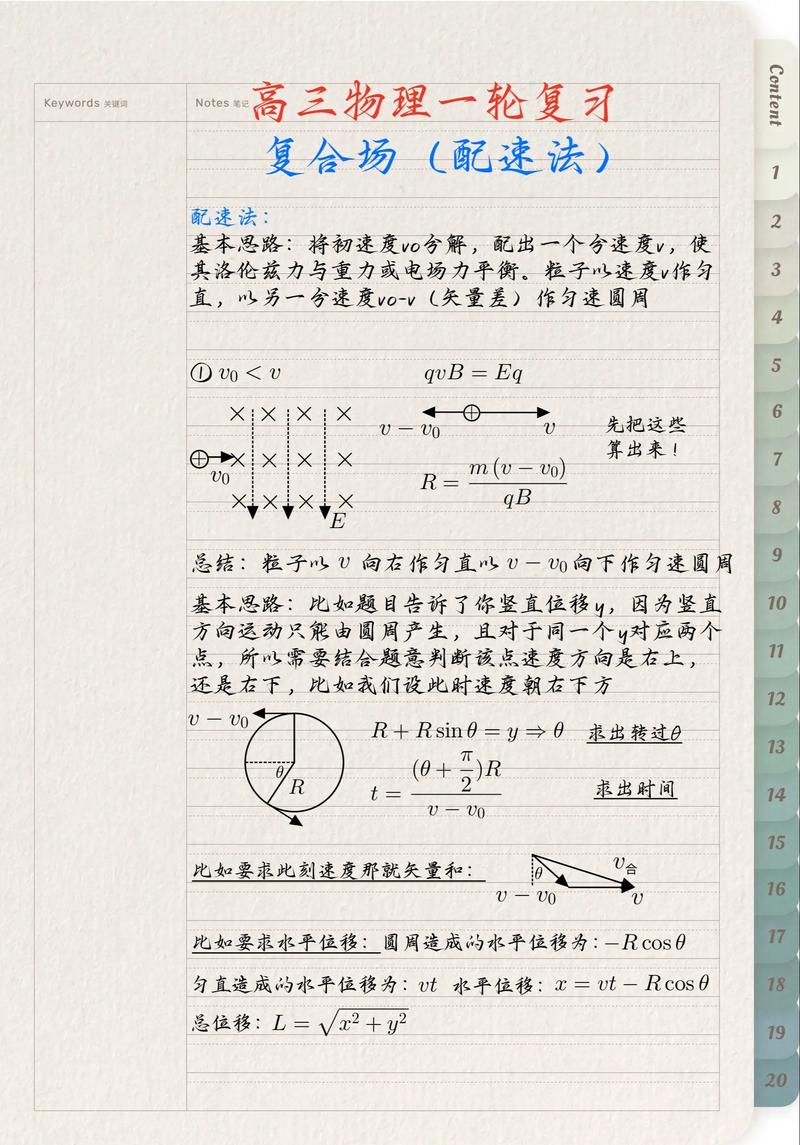 Keywords 关键词
Notes 笔记
高三物理一轮复习
复合场（配速法）
配速法：
基本思路：将初速度vo分解，配出一个分速度v，使
其洛伦兹力与重力或电场力平衡。粒子以速度v作匀
直，以另一分速度vo-v（矢量差）作匀速圆周
① v₀ < v
qvB = Eq
v − v₀
v
先把这些
算出来！
v₀
R = m(v − v₀)/qB
E
总结：粒子以 v 向右作匀直以 v − v₀ 向下作匀速圆周
基本思路：比如题目告诉了你竖直位移y，因为竖直
方向运动只能由圆周产生，且对于同一个y对应两个
点，所以需要结合题意判断该点速度方向是右上，
还是右下，比如我们设此时速度朝右下方
v − v₀
θ
R
R + R sin θ = y ⇒ θ
求出转过θ
t = (θ + π/2)R/(v − v₀)
求出时间
比如要求此刻速度那就矢量和：
θ
v合
v − v₀
v
比如要求水平位移：圆周造成的水平位移为：−R cos θ
匀直造成的水平位移为：vt 水平位移：x = vt − R cos θ
总位移：L = √(x² + y²)
Content
1
2
3
4
5
6
7
8
9
10
11
12
13
14
15
16
17
18
19
20